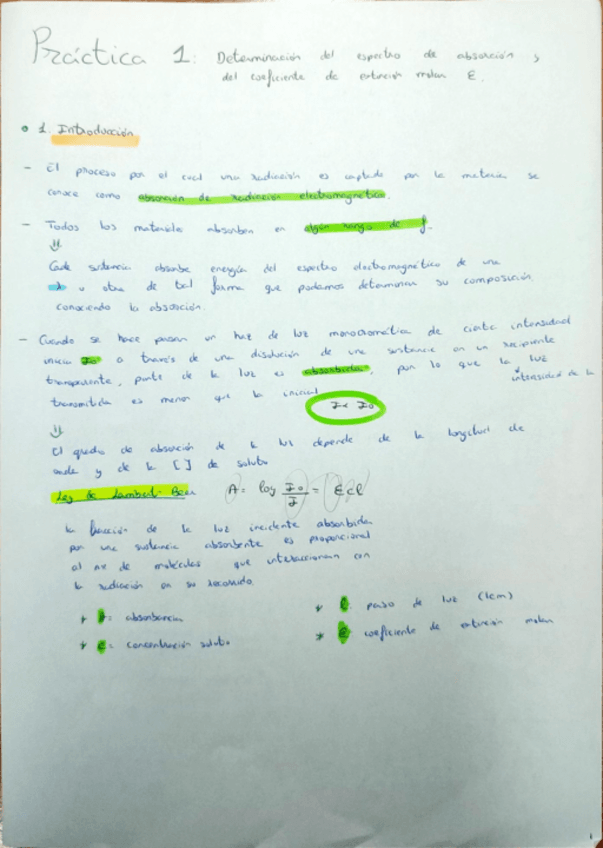 Práctica 1: Determinación del espectro de absorción y
del coeficiente de extinción molar ε.
1. Introducción
- El proceso por el cual una radiación es captada por la materia se
conoce como absorción de radiación electromagnética.
- Todos los materiales absorben en algún rango de f.
⇓
Cada sustancia absorbe energía del espectro electromagnético de una
λ u otra de tal forma que podamos determinar su composición
conociendo la absorción.
- Cuando se hace pasar un haz de luz monocromática de cierta intensidad
inicial I₀ a través de una disolución de una sustancia en un recipiente
transparente, parte de la luz es absorbida, por lo que la intensidad de la luz
transmitida es menor que la inicial
I < I₀
⇓
El grado de absorción de la luz depende de la longitud de
onda y de la [ ] de soluto
Ley de Lambert-Beer A = log I₀/I = εcl
La fracción de la luz incidente absorbida
por una sustancia absorbente es proporcional
al nº de moléculas que interaccionan con
la radiación en su recorrido.
A = absorbancia
c = concentración soluto
l: paso de luz (1cm)
ε: coeficiente de extinción molar
1